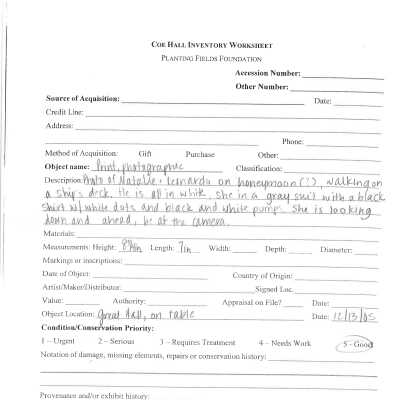 COE HALL INVENTORY WORKSHEET
PLANTING FIELDS FOUNDATION
Accession Number:
Other Number:
Source of Acquisition: Date:
Credit Line:
Address:
Phone:
Method of Acquisition: Gift Purchase Other:
Object name: Print, photographic Classification:
Description: Photo of Natalie + Leonardo on honeymoon (?), walking on
a ship's deck. He is all in white, she in a gray suit with a black
shirt w/ white dots and black and white pumps. She is looking
down and ahead, he at the camera.
Materials:
Measurements: Height: Length: 7in Width: Depth: Diameter:
Markings or inscriptions:
Date of Object: Country of Origin:
Artist/Maker/Distributor: Signed Loc.
Value: Authority: Appraisal on File? Date:
Object Location: Great Hall, on table Date: 12/13/05
Condition/Conservation Priority:
1 – Urgent 2 – Serious 3 – Requires Treatment 4 – Needs Work 5 - Good
Notation of damage, missing elements, repairs or conservation history:
Provenance and/or exhibit history: